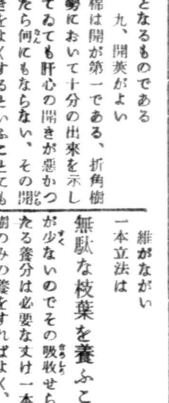 となるものである
九、開莢がよい
棉は開が第一である、折角樹
勢において十分の出來を示し
てゐても肝心の開きが惡かつ
たら何にもならない、その開
維がながい
一本立法は
無駄な枝葉を養ふこ
が少ないのでその吸收せら
たる養分は必要な丈け一本
樹のみの養をすればよく、